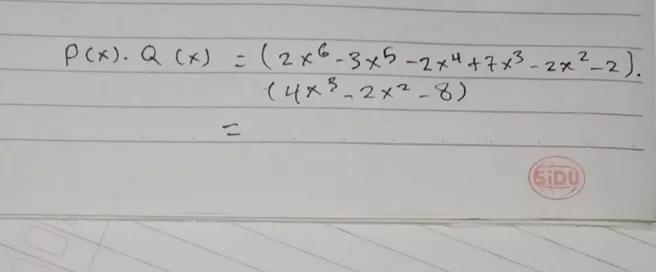 P(x). Q(x) = (2x⁶-3x⁵-2x⁴+7x³-2x²-2).
(4x³-2x²-8)
=
SiDU